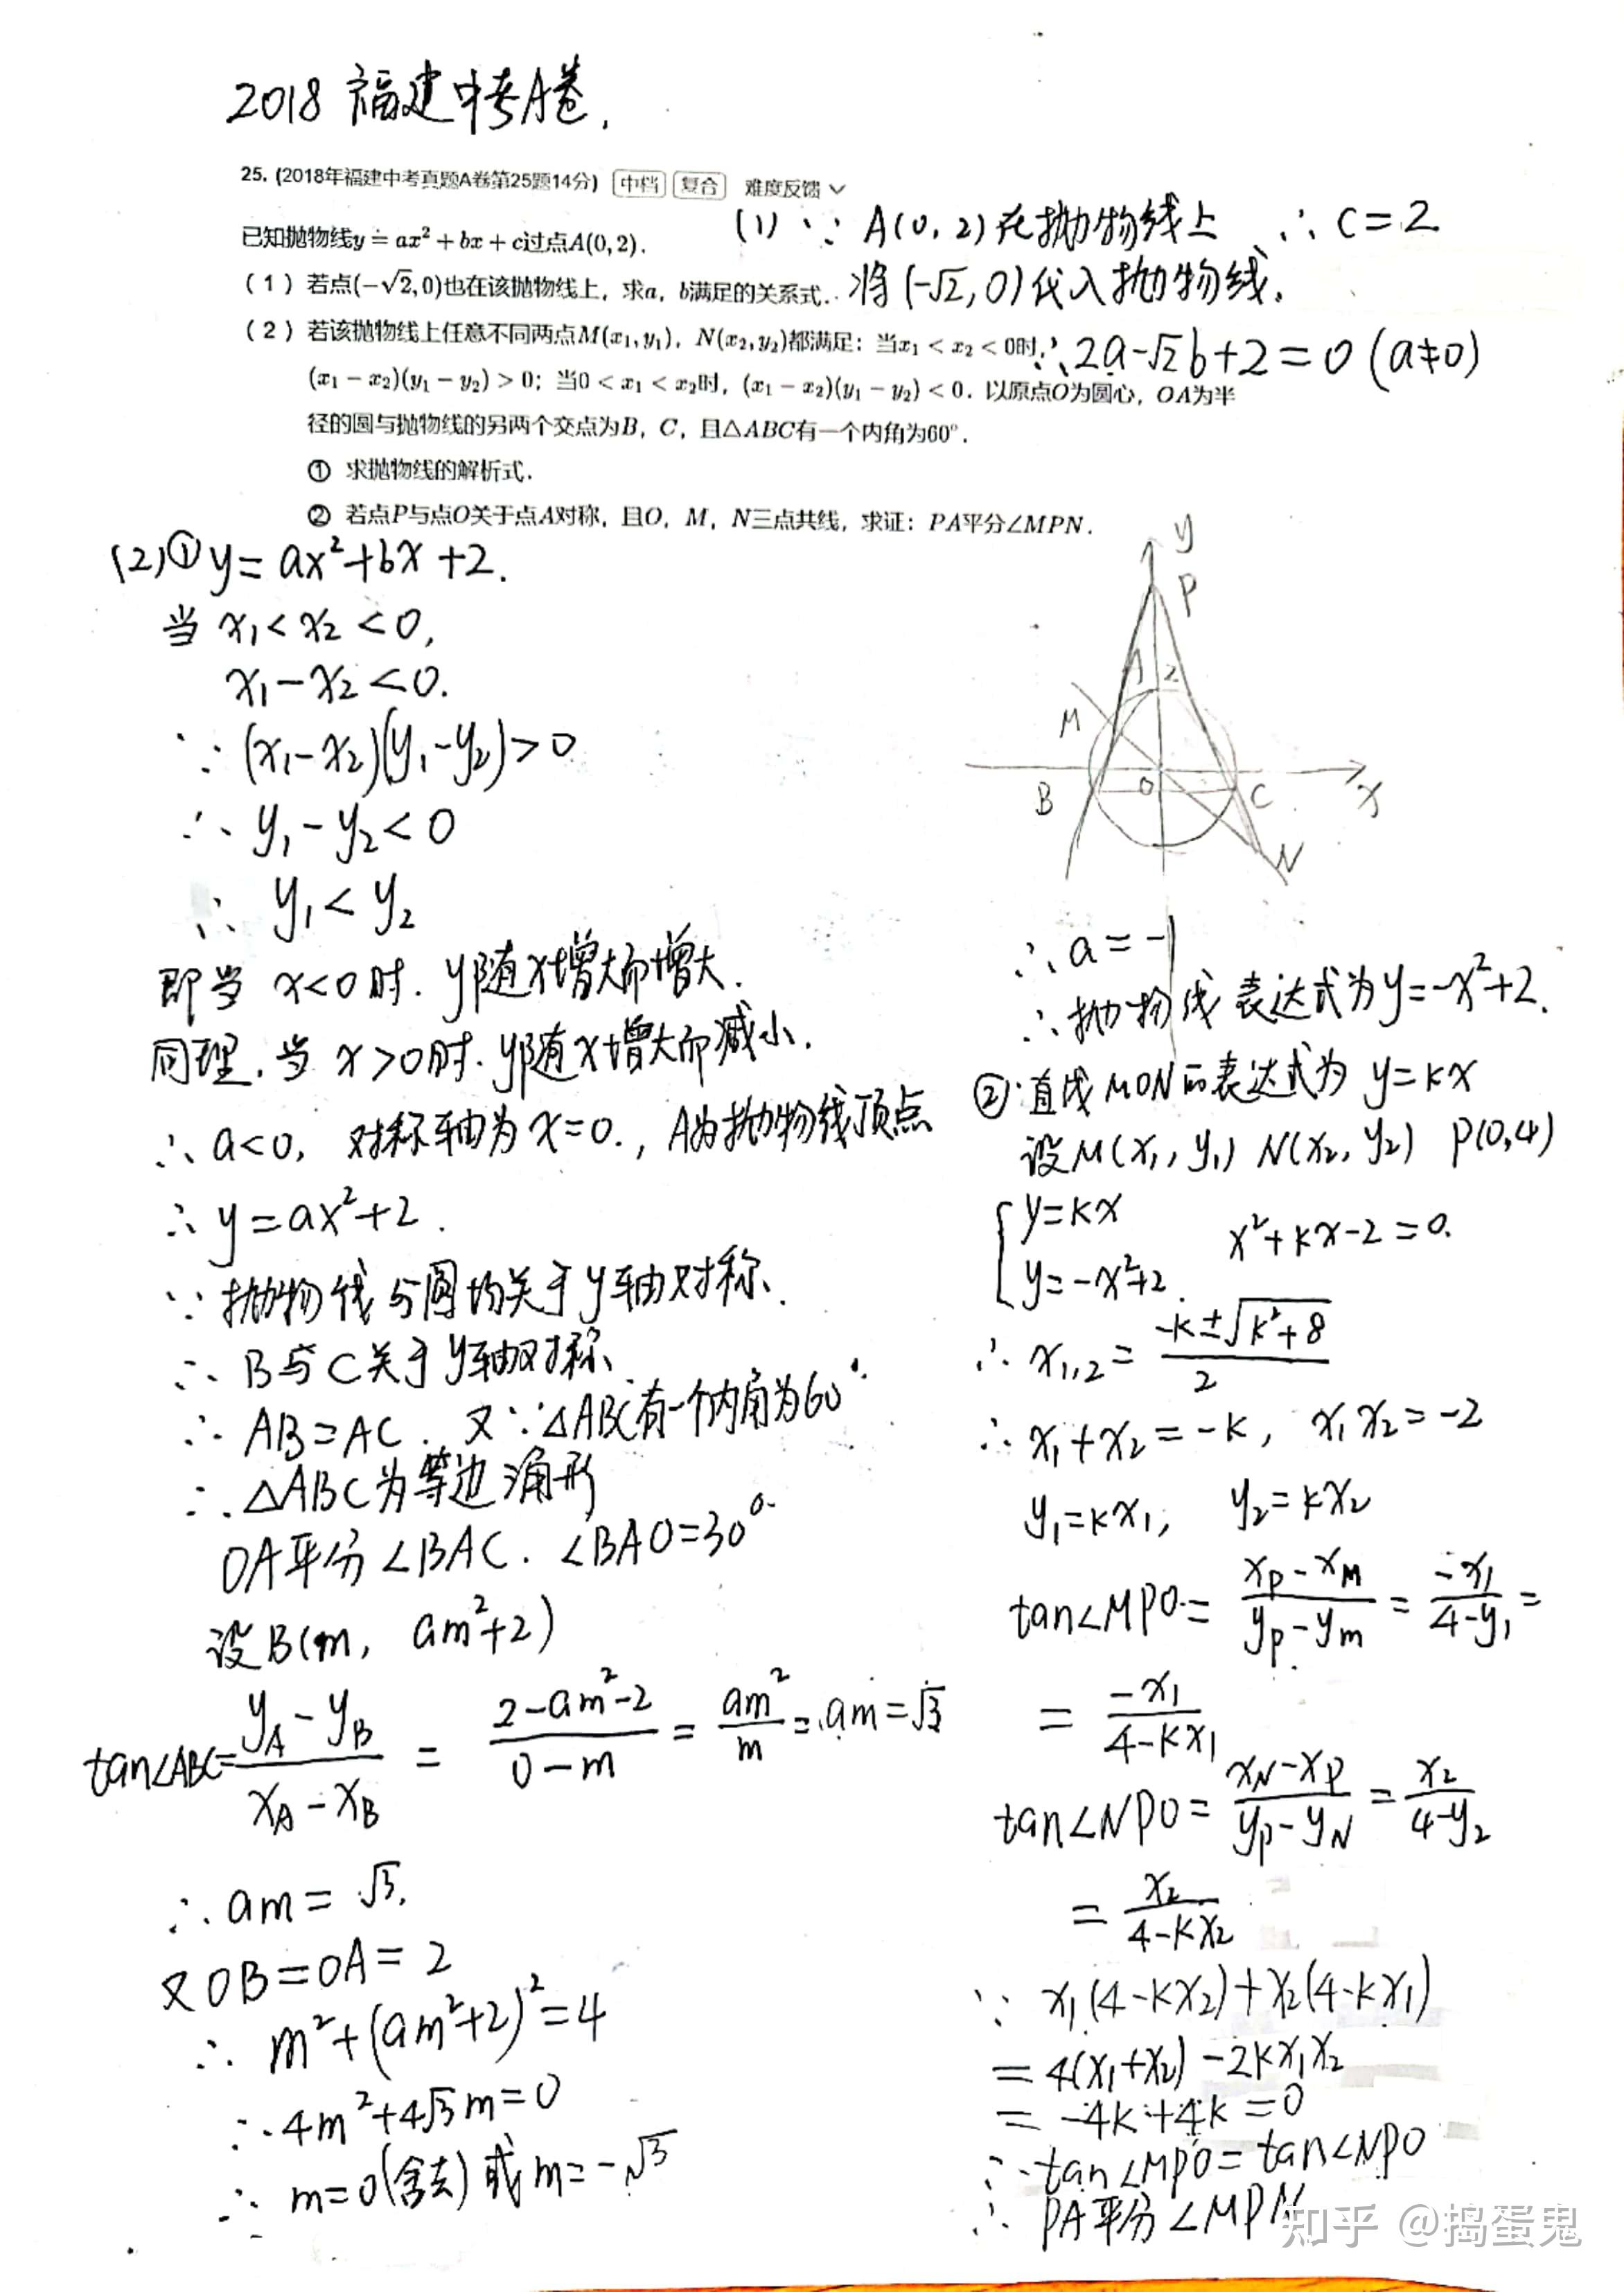 2018 福建中考A卷.
25. (2018年福建中考真题A卷第25题14分) 中档 复合 难度反馈
已知抛物线y = ax² + bx + c过点A(0, 2).
(1) 若点(−√2, 0)也在该抛物线上, 求a, b满足的关系式.
(2) 若该抛物线上任意不同两点M(x₁, y₁), N(x₂, y₂)都满足: 当x₁ < x₂ < 0时,
(x₁ − x₂)(y₁ − y₂) > 0; 当0 < x₁ < x₂时, (x₁ − x₂)(y₁ − y₂) < 0. 以原点O为圆心, OA为半
径的圆与抛物线的另两个交点为B, C, 且△ABC有一个内角为60°.
① 求抛物线的解析式.
② 若点P与点O关于点A对称, 且O, M, N三点共线, 求证: PA平分∠MPN.
(1) ∵ A(0, 2)在抛物线上 ∴ c = 2
将(-√2, 0)代入抛物线.
∴ 2a-√2b+2=0 (a≠0)
(2)① y = ax²+bx+2.
当 x₁ < x₂ < 0,
x₁-x₂ < 0.
∵ (x₁-x₂)(y₁-y₂)>0
∴ y₁-y₂<0
∴ y₁ < y₂
即当 x<0时. y随x增大而增大.
同理. 当 x>0时. y随x增大而减小.
∴ a<0, 对称轴为x=0., A为抛物线顶点
∴ y=ax²+2.
∵ 抛物线与圆均关于y轴对称.
∴ B与C关于y轴对称.
∴ AB=AC. 又∵△ABC有一个内角为60°
∴ △ABC为等边三角形
OA平分∠BAC. ∠BAO=30°
设B(m, am²+2)
tan∠ABC= (y_A - y_B)/(x_A - x_B) = (2-am²-2)/(0-m) = am²/m = am=√3
∴ am = √3.
又OB=OA=2
∴ m²+(am²+2)²=4
∴ 4m²+4√3m=0
∴ m=0(舍去)或m=-√3
y
P
A
2
M
B
O
C
x
N
∴ a = -1
∴ 抛物线表达式为y=-x²+2.
② 直线MON的表达式为 y=kx
设M(x₁, y₁) N(x₂, y₂) P(0,4)
{ y=kx
y=-x²+2. x²+kx-2=0.
∴ x₁,₂ = (-k±√(k²+8))/2
∴ x₁+x₂=-k, x₁x₂=-2
y₁=kx₁, y₂=kx₂
tan∠MPO = (x_P-x_M)/(y_P-y_m) = -x₁/(4-y₁) =
= -x₁/(4-kx₁)
tan∠NPO = (x_N-x_P)/(y_P-y_N) = x₂/(4-y₂)
= x₂/(4-kx₂)
∵ x₁(4-kx₂)+x₂(4-kx₁)
= 4(x₁+x₂)-2kx₁x₂
= -4k+4k=0
∴ tan∠MPO=tan∠NPO
∴ PA平分∠MPN
知乎 @捣蛋鬼